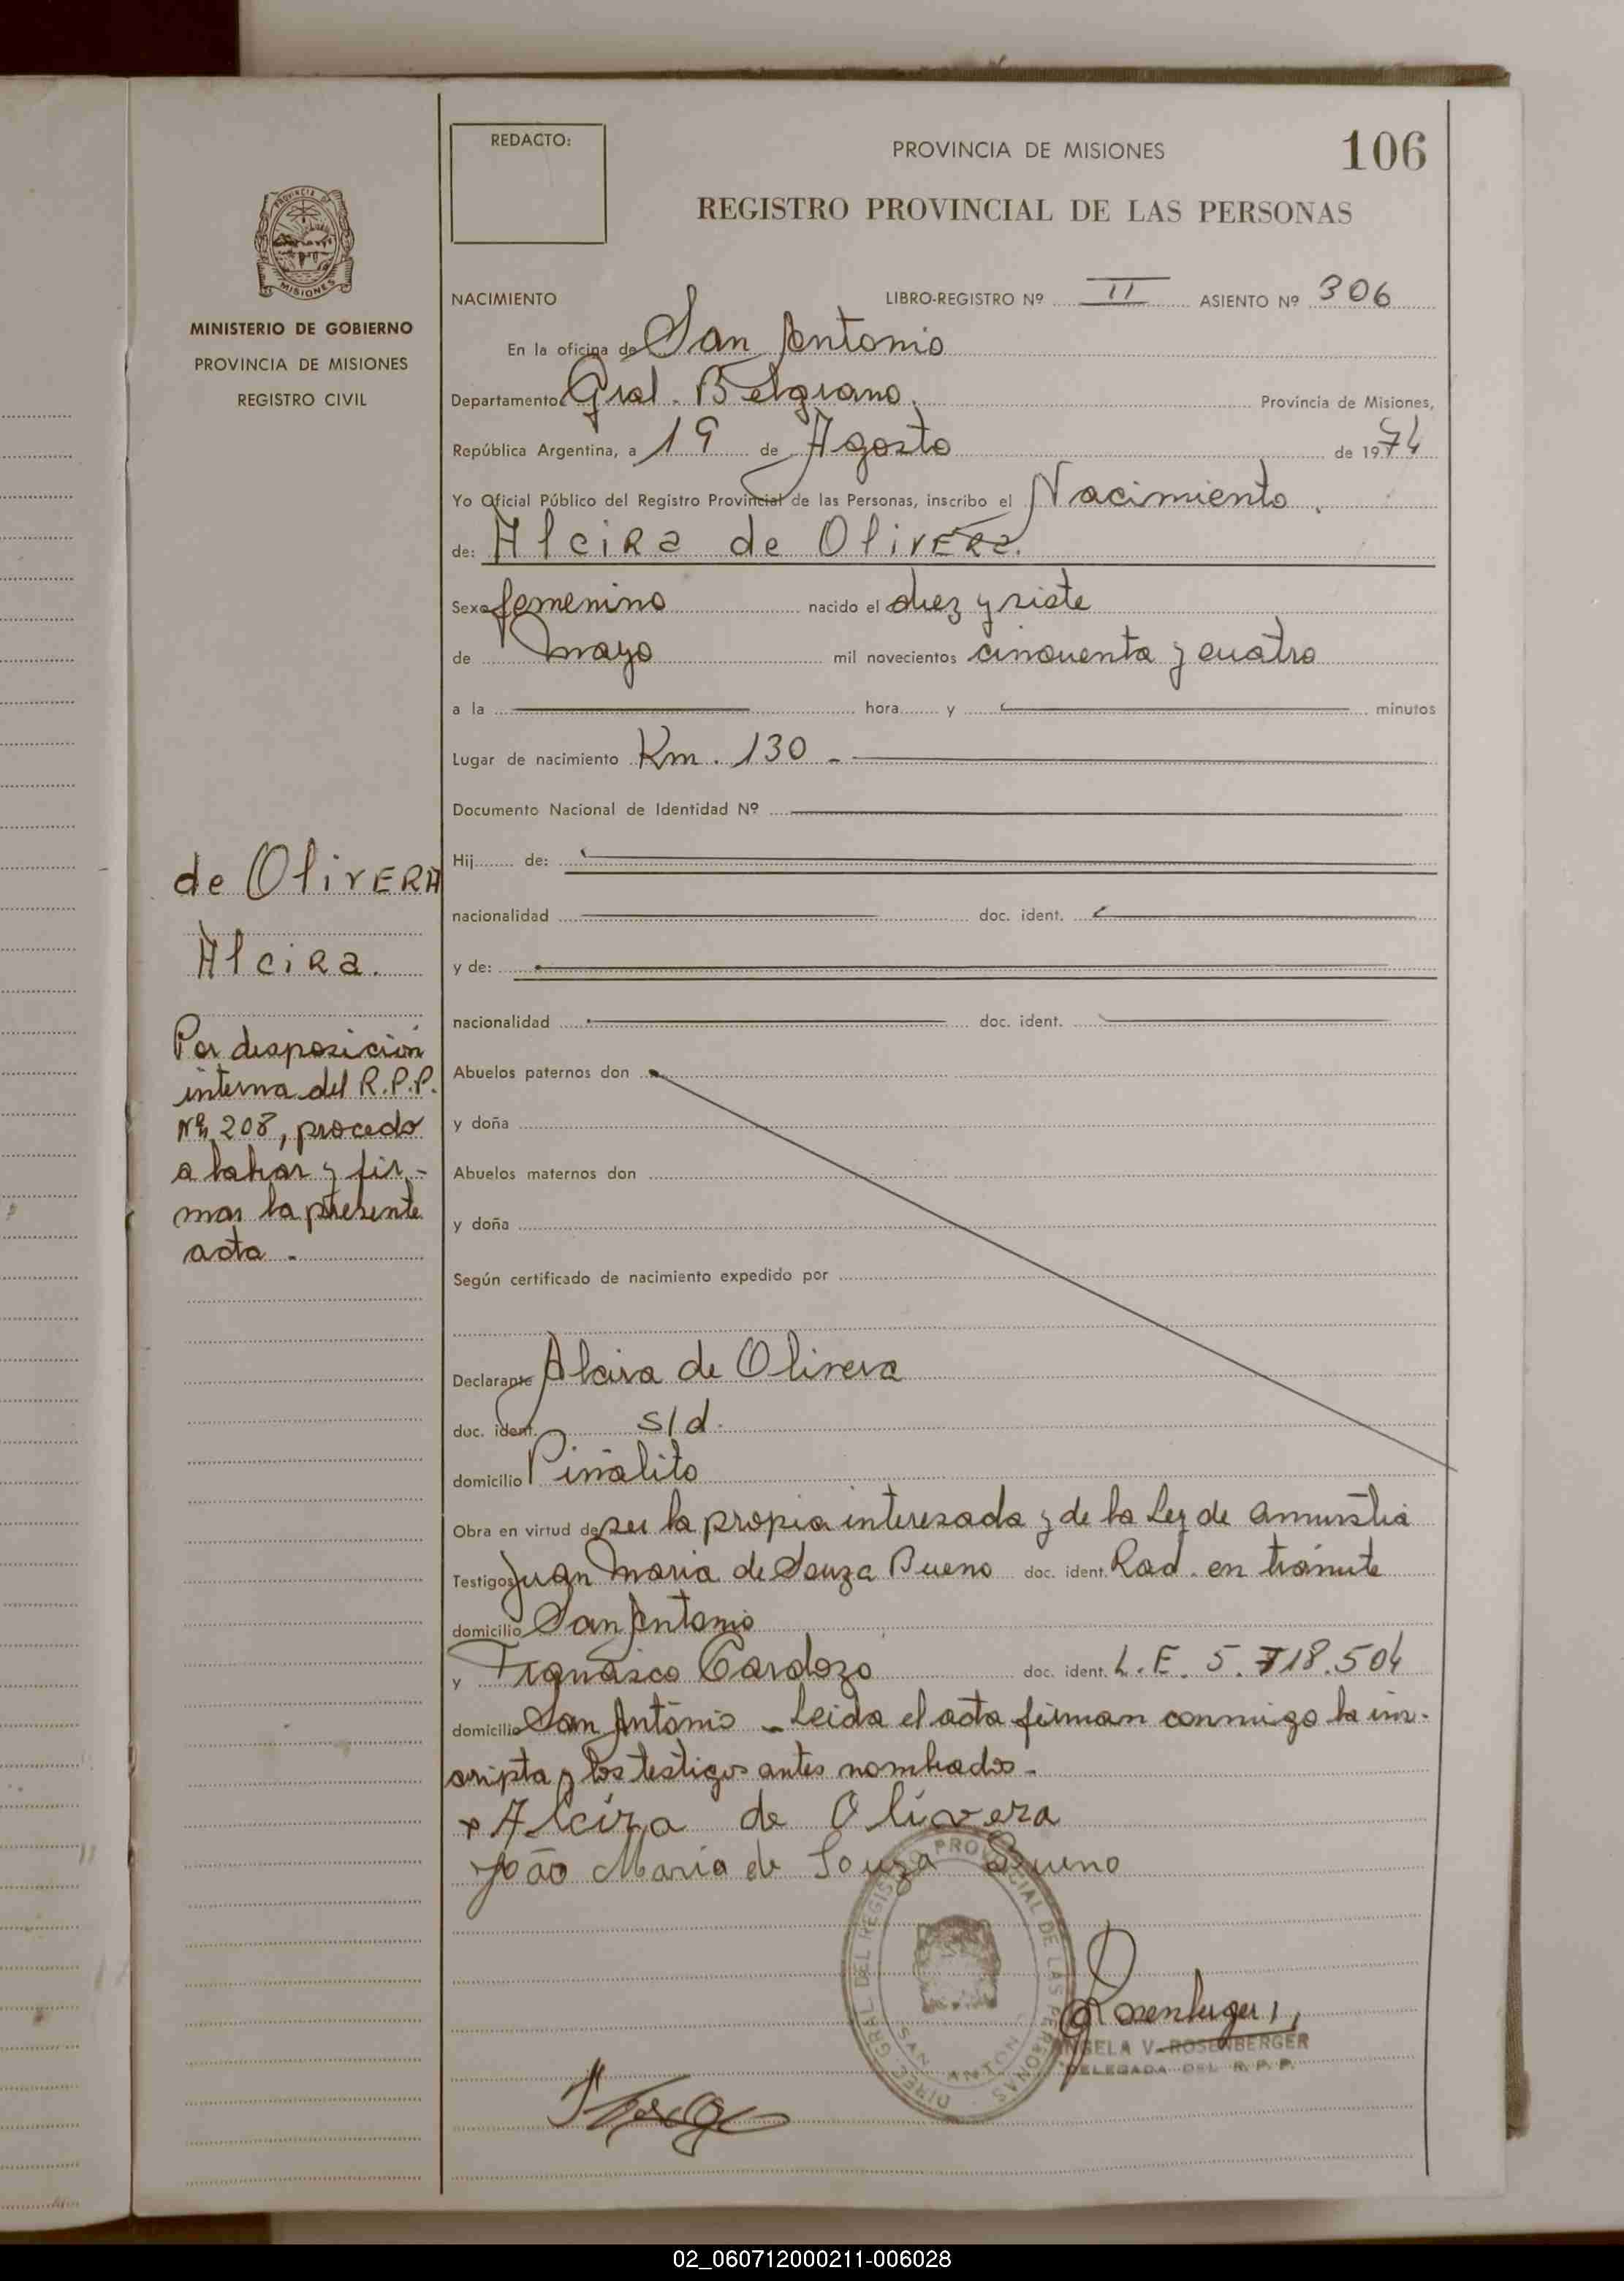 REDACTO:
PROVINCIA DE MISIONES
106
REGISTRO PROVINCIAL DE LAS PERSONAS
PROVINCIA DE
MISIONES
MINISTERIO DE GOBIERNO
PROVINCIA DE MISIONES
REGISTRO CIVIL
NACIMIENTO LIBRO-REGISTRO Nº II ASIENTO Nº 306
En la oficina de San Antonio
Departamento Gral. Belgrano. Provincia de Misiones,
República Argentina, a 19 de Agosto de 1974
Yo Oficial Público del Registro Provincial de las Personas, inscribo el Nacimiento.
de: Alcira de OlivERa.
Sexo femenino nacido el diez y siete
de mayo mil novecientos cincuenta y cuatro
a la hora y minutos
Lugar de nacimiento Km. 130 -
Documento Nacional de Identidad Nº
Hij de:
nacionalidad doc. ident.
y de:
nacionalidad doc. ident.
Abuelos paternos don
y doña
Abuelos maternos don
y doña
Según certificado de nacimiento expedido por
Declarante Alcira de Olivera
doc. ident. s/d.
domicilio Piñalito
Obra en virtud de ser la propia interesada y de la Ley de amnistia
Testigos Juan Maria de Souza Bueno doc. ident. Rad. en trámite
domicilio San Antonio
y Francisco Cardozo doc. ident. L.E. 5.718.504
domicilio San Antonio - Leida el acta firman conmigo la ins-
cripta y los testigos antes nombrados -
x Alcira de Olivera
João Maria de Souza Bueno
DIREC. GRAL. DEL REGISTRO PROVINCIAL DE LAS PERSONAS
SAN ANTONIO
Rosenberger
ANGELA V. ROSENBERGER
DELEGADA DEL R. P. P.
de OlivERA
Alcira.
Por disposición
interna del R.P.P.
Nº 208, procedo
a labrar y fir-
mar la presente
acta -
02_060712000211-006028